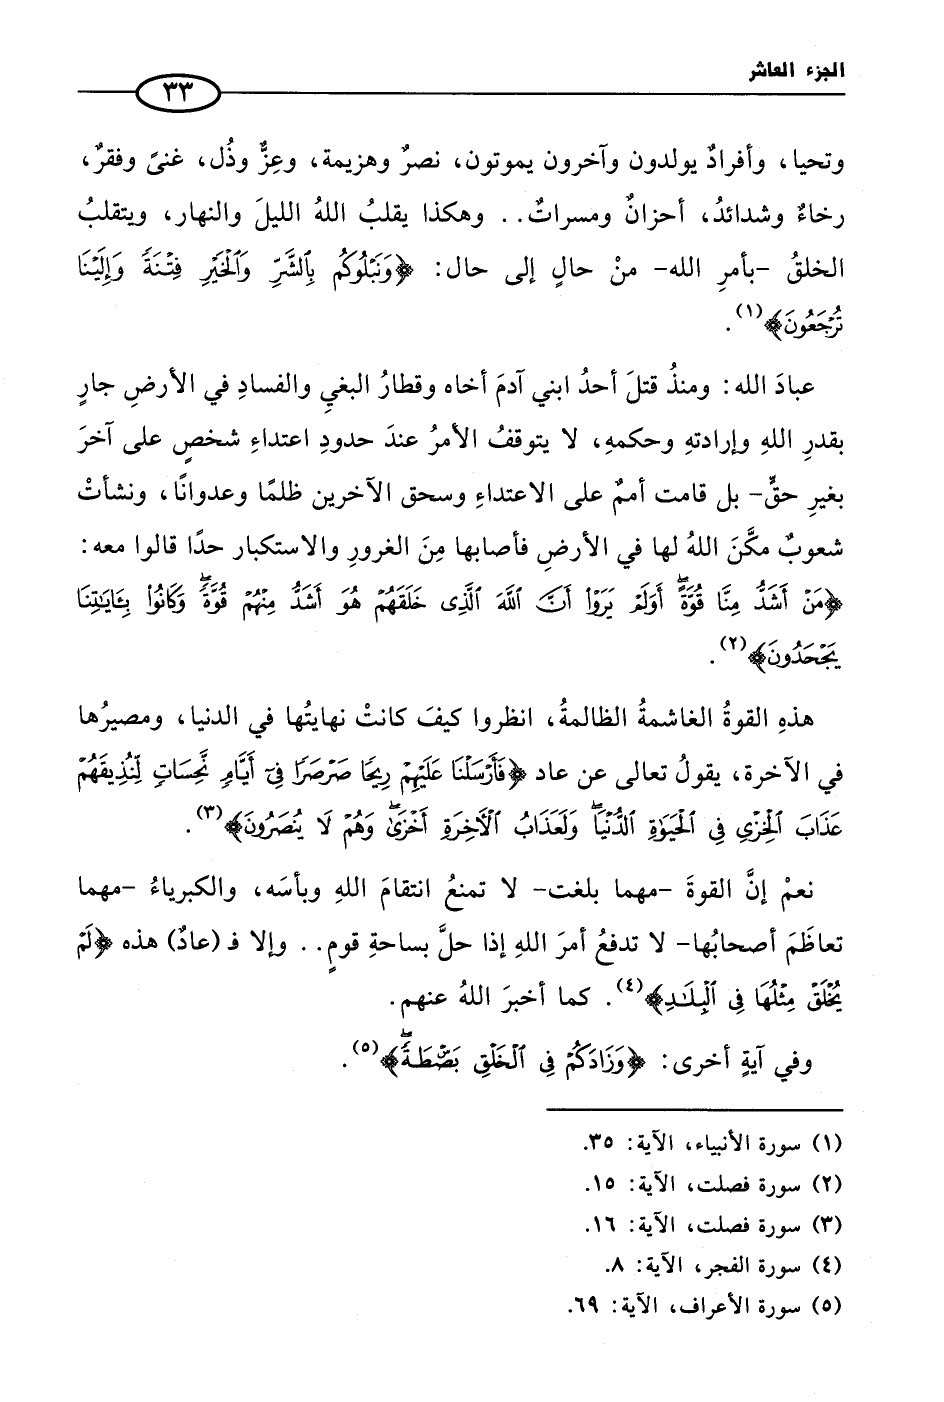 الجزء العاشر
٣٣
وتحيا، وأفرادٌ يولدون وآخرون يموتون، نصرٌ وهزيمة، وعِزٌّ وذُل، غنىً وفقرٌ،
رخاءٌ وشدائدُ، أحزانٌ ومسراتٌ.. وهكذا يقلبُ اللهُ الليلَ والنهار، ويتقلبُ
الخلقُ -بأمرِ الله- منْ حالٍ إلى حال: ﴿وَنَبْلُوكُم بِٱلشَّرِّ وَٱلْخَيْرِ فِتْنَةً وَإِلَيْنَا
تُرْجَعُونَ﴾(١).
عبادَ الله: ومنذُ قتلَ أحدُ ابني آدمَ أخاه وقطارُ البغيِ والفسادِ في الأرضِ جارٍ
بقدرِ اللهِ وإرادتهِ وحكمهِ، لا يتوقفُ الأمرُ عندَ حدودِ اعتداءِ شخصٍ على آخرَ
بغيرِ حقٍّ- بل قامت أممٌ على الاعتداءِ وسحق الآخرين ظلمًا وعدوانًا، ونشأتْ
شعوبٌ مكَّنَ اللهُ لها في الأرضِ فأصابها مِنَ الغرورِ والاستكبار حدًا قالوا معه:
﴿مَنْ أَشَدُّ مِنَّا قُوَّةً ۖ أَوَلَمْ يَرَوْا۟ أَنَّ ٱللَّهَ ٱلَّذِى خَلَقَهُمْ هُوَ أَشَدُّ مِنْهُمْ قُوَّةً ۖ وَكَانُوا۟ بِـَٔايَـٰتِنَا
يَجْحَدُونَ﴾(٢).
هذهِ القوةُ الغاشمةُ الظالمةُ، انظروا كيفَ كانتْ نهايتُها في الدنيا، ومصيرُها
في الآخرة، يقولُ تعالى عن عاد ﴿فَأَرْسَلْنَا عَلَيْهِمْ رِيحًا صَرْصَرًا فِىٓ أَيَّامٍ نَّحِسَاتٍ لِّنُذِيقَهُمْ
عَذَابَ ٱلْخِزْىِ فِى ٱلْحَيَوٰةِ ٱلدُّنْيَا ۖ وَلَعَذَابُ ٱلْـَٔاخِرَةِ أَخْزَىٰ ۖ وَهُمْ لَا يُنصَرُونَ﴾(٣).
نعمْ إنَّ القوةَ -مهما بلغت- لا تمنعُ انتقامَ اللهِ وبأسَه، والكبرياءُ -مهما
تعاظَمَ أصحابُها- لا تدفعُ أمرَ اللهِ إذا حلَّ بساحةِ قومٍ.. وإلا فـ (عادٌ) هذه ﴿لَمْ
يُخْلَقْ مِثْلُهَا فِى ٱلْبِلَـٰدِ﴾(٤). كما أخبرَ اللهُ عنهم.
وفي آيةٍ أخرى: ﴿وَزَادَكُمْ فِى ٱلْخَلْقِ بَصْۜطَةً ۖ﴾(٥).
(١) سورة الأنبياء، الآية: ٣٥.
(٢) سورة فصلت، الآية: ١٥.
(٣) سورة فصلت، الآية: ١٦.
(٤) سورة الفجر، الآية: ٨.
(٥) سورة الأعراف، الآية: ٦٩.